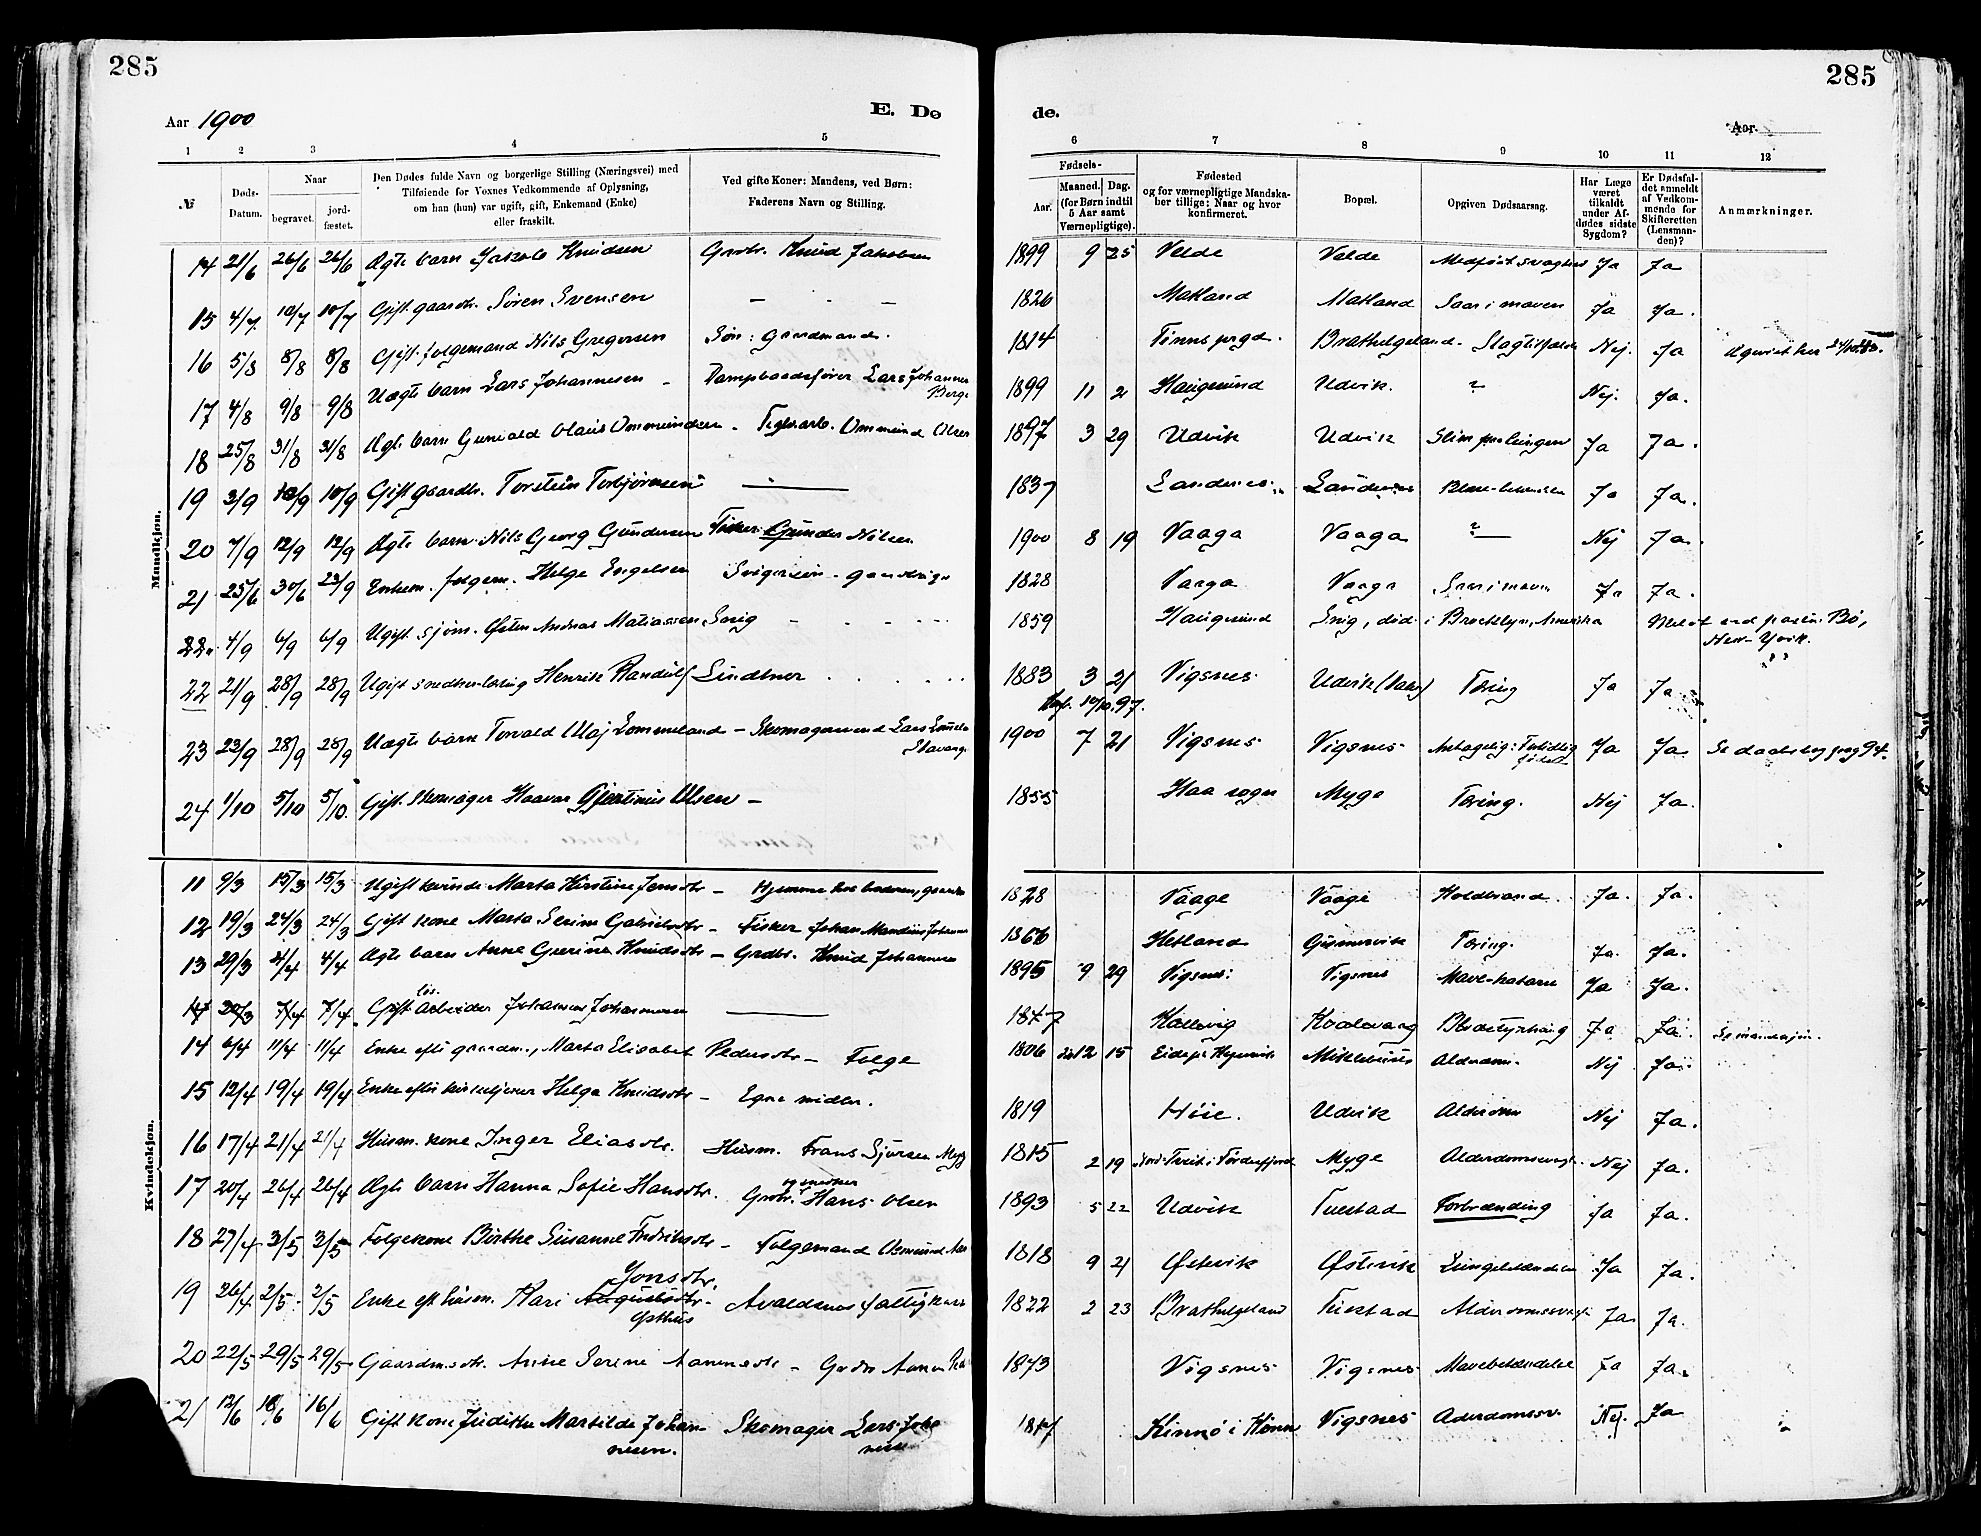 285
285
Aar 1900
E. Dø
de.
Aar.
1 2 3 4 5 6 7 8 9 10 11 12
№
Døds-Datum.
Naar
begravet.
jord-fæstet.
Den Dødes fulde Navn og borgerlige Stilling (Næringsvei) med
Tilføiende for Voxnes Vedkommende af Oplysning,
om han (hun) var ugift, gift, Enkemand (Enke)
eller fraskilt.
Ved gifte Koner: Mandens, ved Børn:
Faderens Navn og Stilling.
Fødsels-
Aar.
Maaned. Dag.
(for Børn indtil
5 Aar samt
Værnepligtige).
Fødested
og for værnepligtige Mandska-
ber tillige: Naar og hvor
konfirmeret.
Bopæl.
Opgiven Dødsaarsag.
Har Læge
været
tilkaldt
under Af-
dødes sidste
Sygdom?
Er Dødsfal-
det anmeldt
af Vedkom-
mende for
Skifteretten
(Lensman-
den)?
Anmærkninger.
Mandkjøn.
14 21/6 26/6 26/6 Ægte barn Jakob Knudsen Grdbr. Knud Jakobsen 1899 9 25 Velde Velde Medfødt svaghed Ja Ja
15 4/7 10/7 10/7 Gift gaardbr. Søren Svensen — - — 1826 Matland Matland Saar i maven Ja Ja.
16 5/8 8/8 8/8 Gift folgemand Nils Gregersen Søn: gaardmand. 1814 Tinns prgd. Brathelgeland Slagtilfælde Nej. Ja
17 4/8 9/8 9/8 Uægte barn Lars Johannesen - Dampbaadsfører Lars Johannes
Berge 1899 11 2 Haugesund Udvik. ? Nej. Ja.
18 25/8 31/8 31/8 Ægte barn Gunvald Olaus Ommundsen - Ommund Olsen 1897 3 29 Udvik Udvik Ja Ja.
19 3/9 10/9 10/9 Gift gaardbr. Torstein Torbjørnsen — 1837 Sandenes Sandenes Ja Ja.
20 7/9 12/9 12/9 Ægte barn Nils Georg Gundersen Fisker Gunder Nilsen 1900 8 19 Vaaga Vaaga ? — Nej Ja.
21 25/6 30/6 23/9 Enkem. folgem. Helge Engelsen Svigersøn - 1828 Vaaga Vaaga Saar i maven Ja Ja.
22. 4/9 6/9 6/9 Ugift sjøm. Østen Andreas Matiassen Snig - - - 1859 Haugesund Snig, død i Brooklyn, Amerika Meldt ved pastor Bø,
New York.
22 21/9 28/9 28/9 Ugift snedkerlærling Henrik Randulf Lindtner . . . . 1883 3 21 Vigsnes Udvik Tæring Ja Ja
Konf. 10/10.97.
23 23/9 28/9 28/9 Uægte barn Torvald Olaj Lommeland - Skomagersvend Lars
Stavang 1900 7 21 Vigsnes Vigsnes Antagelig: Fortidlig
født Ja Ja Se daabsbog pag 94.
24 1/10 5/10 5/10. Gift. Skomager Haavar Gjertinius Olsen — 1855 Haa sogn Myge Tæring. Nej Ja.
Kvindekjøn.
11 9/3 15/3 15/3 Ugift kvinde Marta Kirstine Jensdtr - Hjemme hos broderen, 1828 Vaage Vaage Koldbrand. Ja. Ja.
12 19/3 24/3 24/3 Gift kone Marta Serine Gabrielsdtr - Fisker Johan Mandius Johannes 1866 Hetland Tæring. Ja. Ja.
13 29/3 4/4 4/4 Ægte barn Anne Gurine Knudsdtr - Grdbr. Knud Johannesen 1895 9 29 Vigsnes: Vigsnes Mave-katarr Ja Ja.
14 20/3 7/4 7/4 Gift løs.
Arbeider Johannes Johannesen — 1847 Kallevig Kvalavaag Ja Ja. Se mandkjøn.
14 6/4 11/4 11/4 Enke efter gaardm., Marta Elisabet Pedersdtr - Folge 1806 12 15 Mikkelbuus Alderdom. Nej Ja.
15 12/4 19/4 19/4 Enke efter kirketjener Helga Knudsdtr - Egne midler. 1819 Høie. Udvik Alderdom Nej Ja.
16 17/4 21/4 21/4 Husm. kone Inger Eliasdtr. Husm. Frans Sjursen Myge 1815 2 19 Myge Alderdomssvagh. Nej Ja.
17 20/4 26/4 26/4 Ægte barn Hanna Sofie Hansdtr. Grdbr. og snedker
Hans Olsen 1893 5 22 Udvik Tuestad Forbrænding Ja Ja.
18 27/4 3/5 3/5 Folgekone Birthe Susanne Fredriksdtr - Folgemand Osmund 1818 9 21 Østevik Østevik Lungebetændelse Ja Ja.
19 26/4 2/5 2/5 Enke eft husm. Kari Jonsdtr.
Augustsdtr - Avaldsnes fattigkasse 1822 2 23 Brathelgeland Tuestad Alderdomssvagh Ja Ja.
20 22/5 29/5 29/5 Gaardmsdtr. Anne Serine Aanensdtr - Grdbr Aanen 1873 Vigsnes Vigsnes Mavebetændelse Ja Ja.
21 12/6 16/6 16/6 Gift kone Judithe Martilde Johan-
nesen. Skomager Lars Joha
nesen Vigsnes Aderdomssv. Nej. Ja